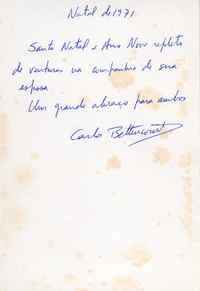 Natal de 1971
Santo Natal e Ano Novo repleto
de venturas na companhia de sua
esposa
Um grande abraço para ambos
Carlo Bettencourt